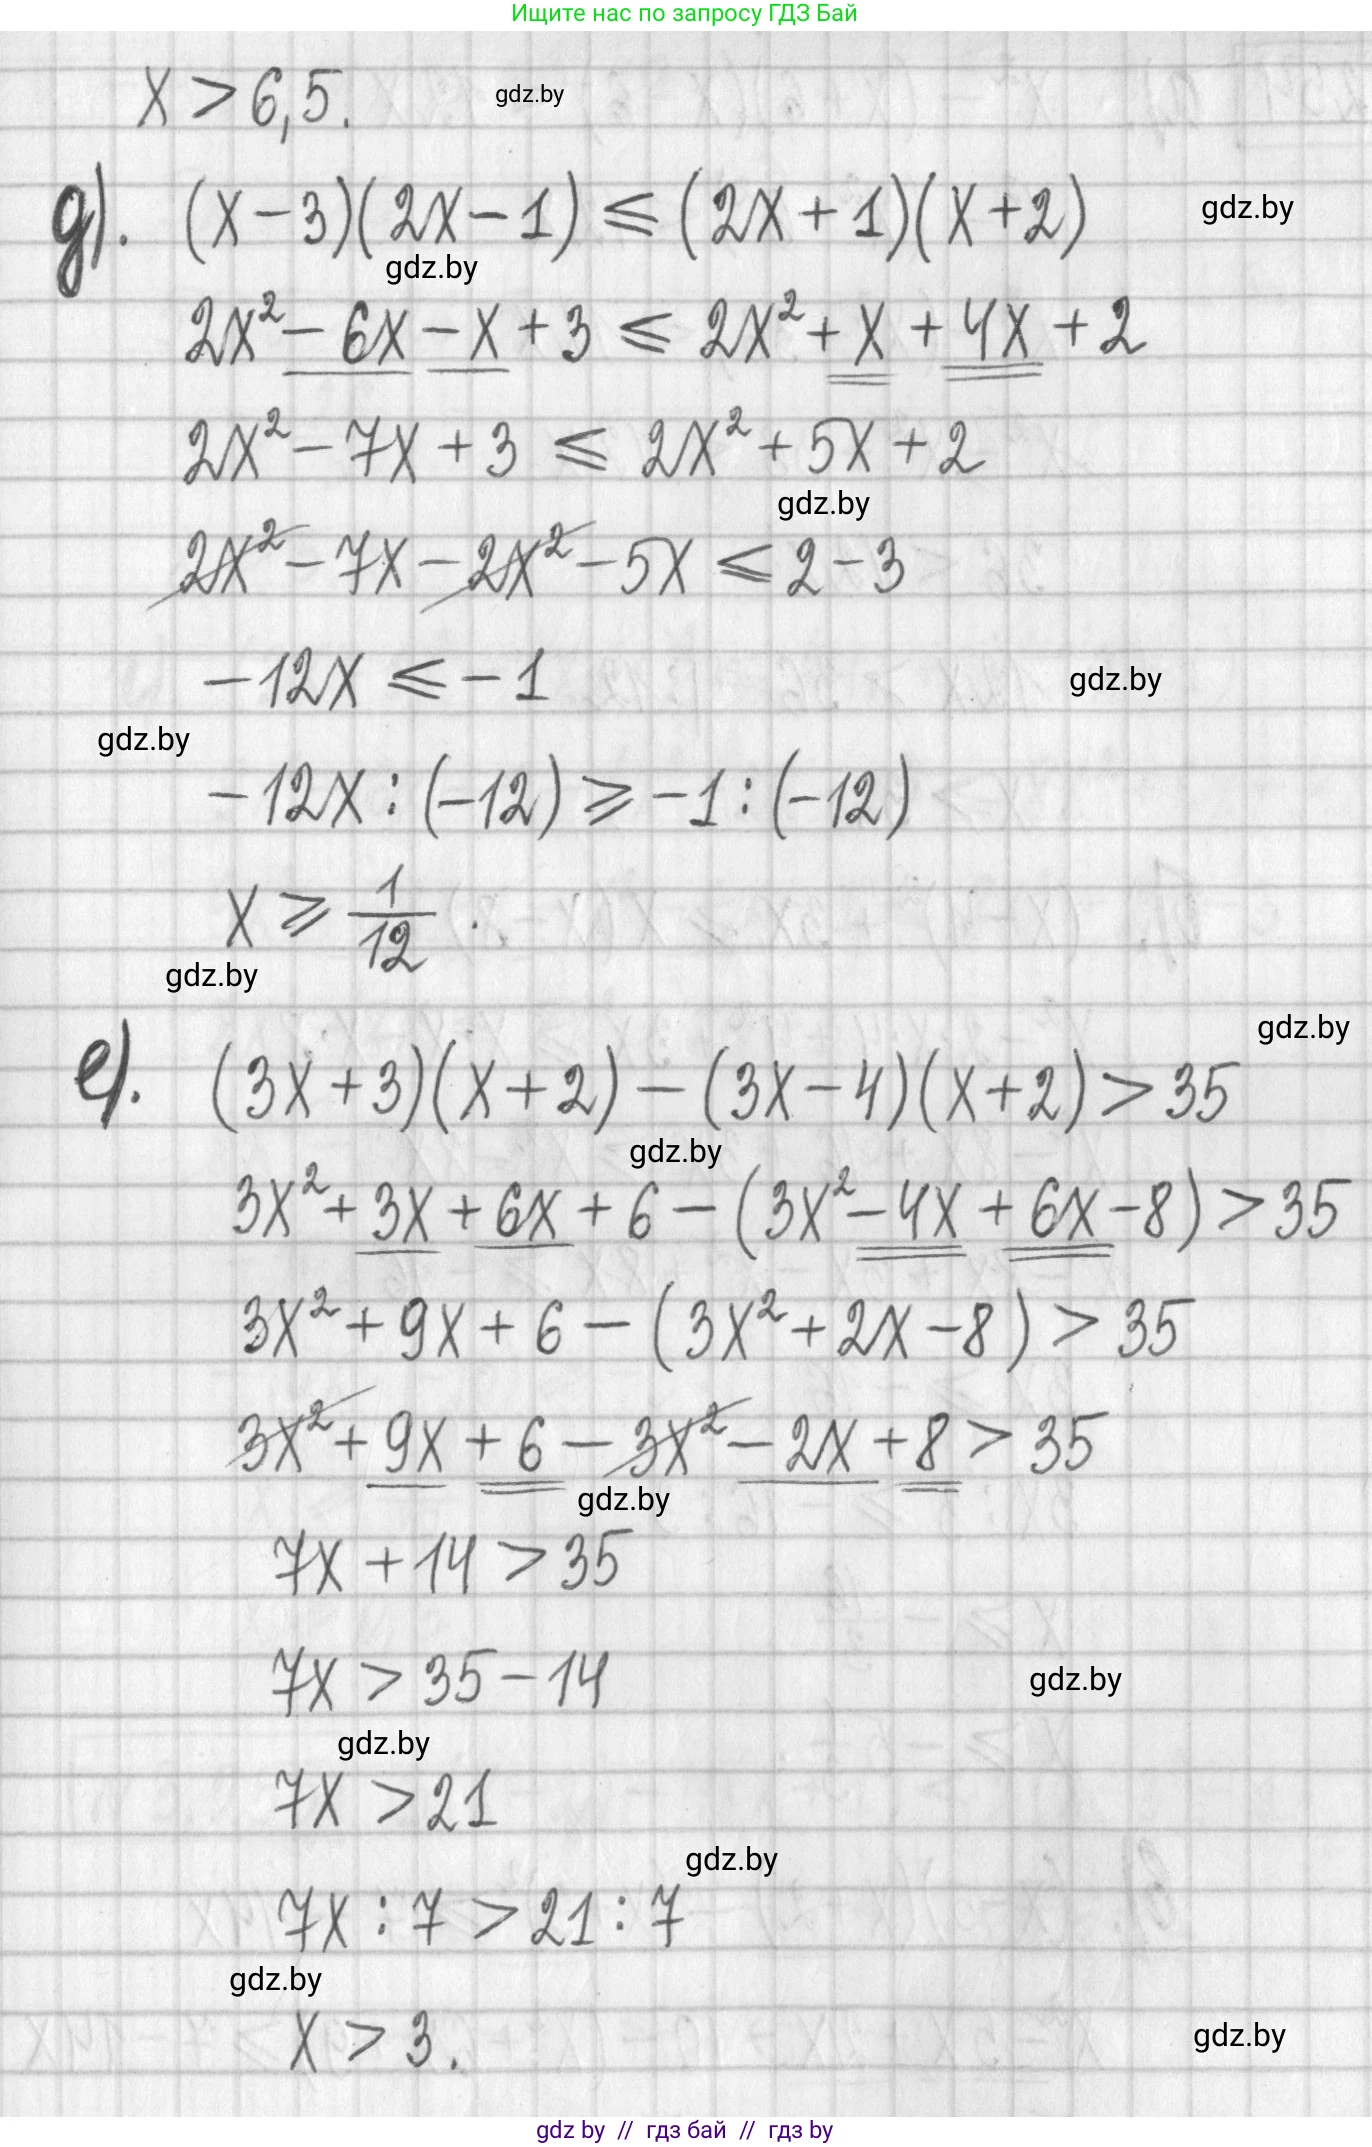 Ищите нас по запросу ГДЗ Бай
x > 6,5.
gdz.by
д). (x - 3)(2x - 1) ⩽ (2x + 1)(x + 2)
gdz.by
gdz.by
2x² - 6x - x + 3 ⩽ 2x² + x + 4x + 2
2x² - 7x + 3 ⩽ 2x² + 5x + 2
gdz.by
2x² - 7x - 2x² - 5x ⩽ 2 - 3
-12x ⩽ -1
gdz.by
gdz.by
-12x : (-12) ⩾ -1 : (-12)
x ⩾ 1/12.
gdz.by
gdz.by
е). (3x + 3)(x + 2) - (3x - 4)(x + 2) > 35
gdz.by
3x² + 3x + 6x + 6 - (3x² - 4x + 6x - 8) > 35
3x² + 9x + 6 - (3x² + 2x - 8) > 35
3x² + 9x + 6 - 3x² - 2x + 8 > 35
gdz.by
7x + 14 > 35
7x > 35 - 14
gdz.by
gdz.by
7x > 21
gdz.by
7x : 7 > 21 : 7
gdz.by
x > 3.
gdz.by
gdz by // гдз бай // гдз by